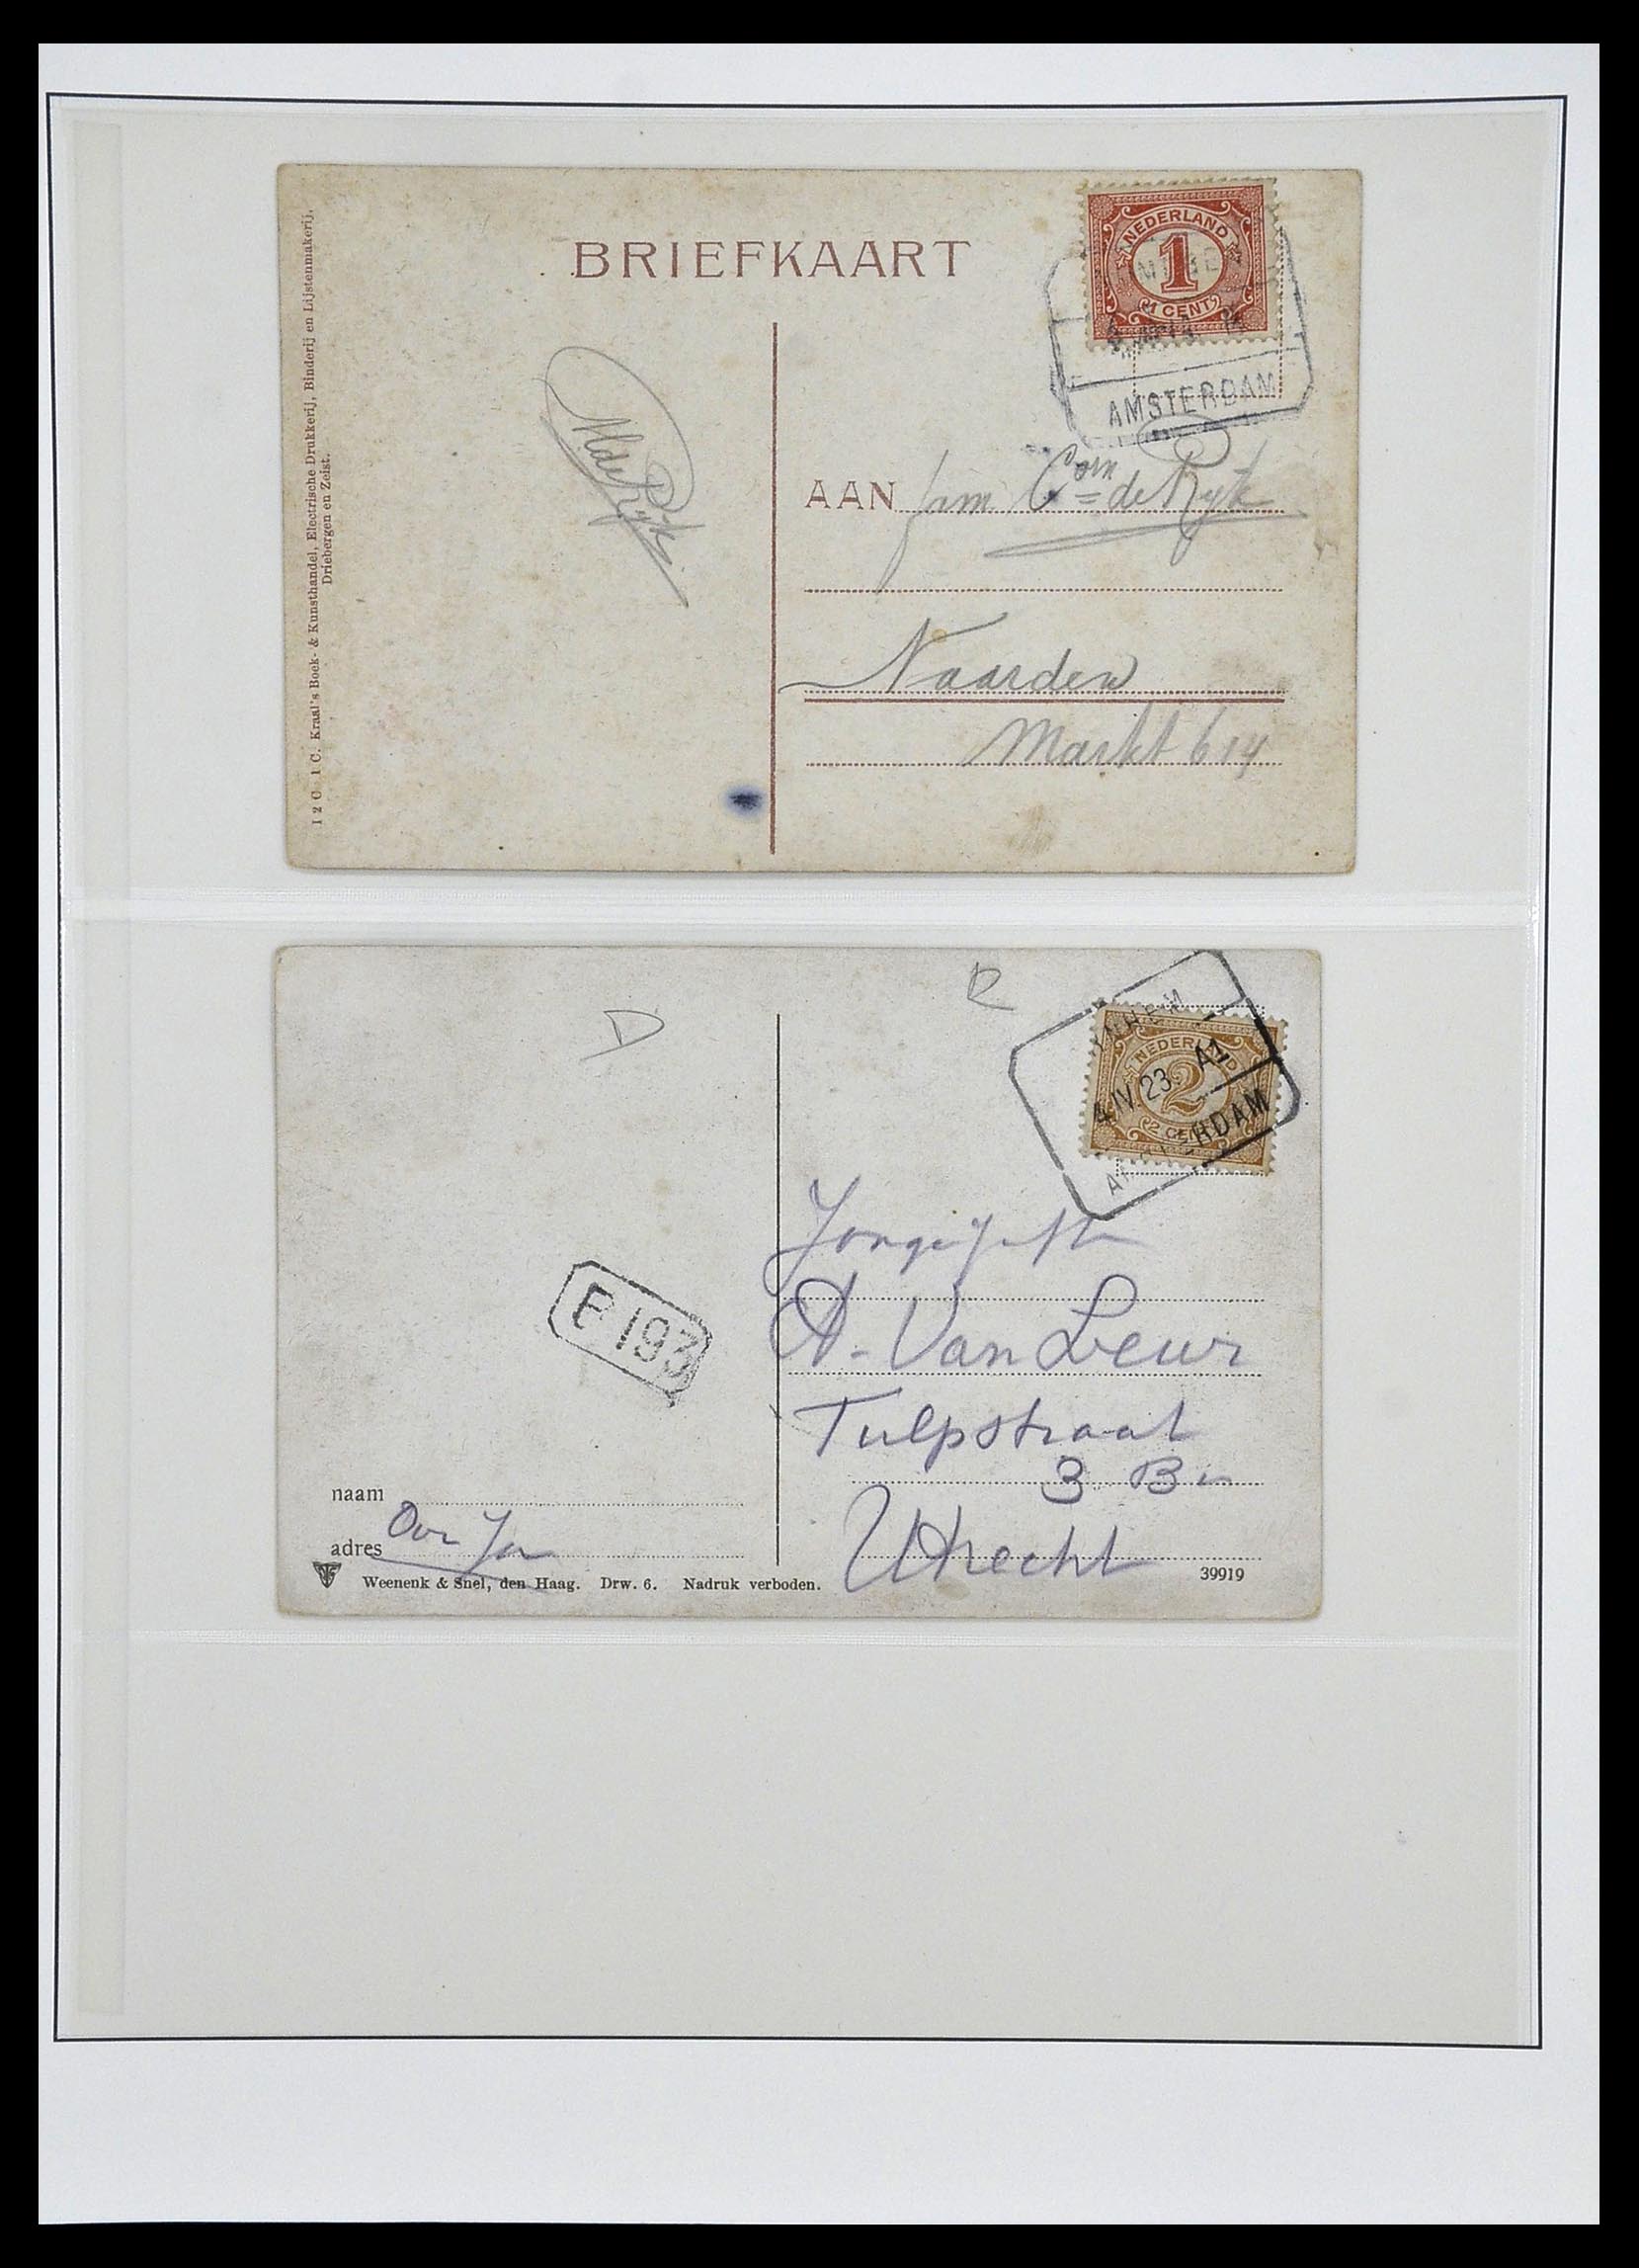 BRIEFKAART
NEDERLAND
1
1 CENT
AMSTERDAM
1 2 C 1 C. Kraal's Boek- & Kunsthandel, Electrische Drukkerij, Binderij en Lijstenmakerij,
Driebergen en Zeist.
MdeRijk
AAN firm Corn de Rijk
Naarden
Markt 614
D
R
NEDERLAND
2
2 CENT
4 IV 23 A1
AMSTERDAM
P 193
A. Van Leur
Tulpstraat
3 B
Utrecht
naam
adres
Weenenk & Snel, den Haag. Drw. 6. Nadruk verboden.
39919